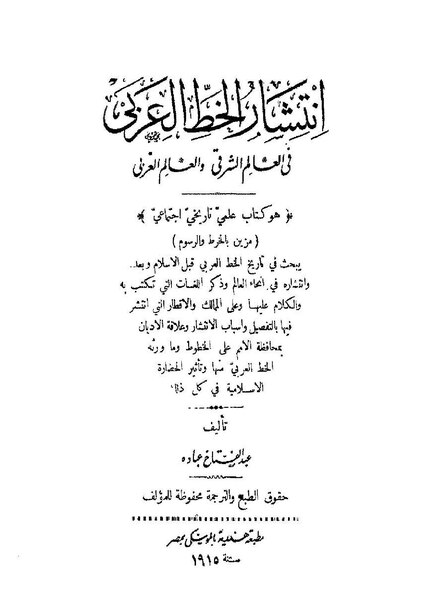 انتشار الخط العربي
في العالم الشرقي والعالم الغربي
﴿ هو كتاب علمي تاريخي اجتماعي ﴾
( مزين بالخرط والرسوم )
يبحث في تاريخ الخط العربي قبل الاسلام وبعده
وانتشاره في انحاء العالم وذكر اللغات التي تكتب به
والكلام عليها وعلى الممالك والاقطار التي انتشر
فيها بالتفصيل واسباب الانتشار وعلاقة الاديان
بمحافظة الامم على الخطوط وما ورثه
الخط العربيّ منها وتأثير الحضارة
الاسلامية في كل ذلك
تأليف
عبد الفتاح عباده
حقوق الطبع والترجمة محفوظة للمؤلف
مطبعة هندية بالموسكي بمصر
سنة ١٩١٥